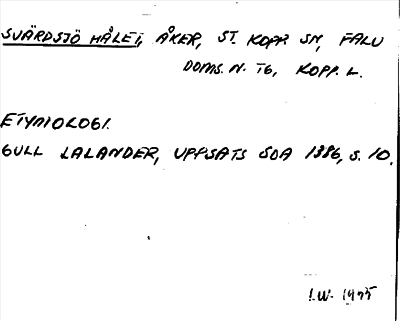 SVÄRDSJÖ MÅLET, ÅKER, ST. KOPP. SN, FALU
DOMS. N. TG, KOPP. L.
ETYMOLOGI.
GULL LALANDER, UPPSATS SOA 1386, S. 10.
I.W. 1975